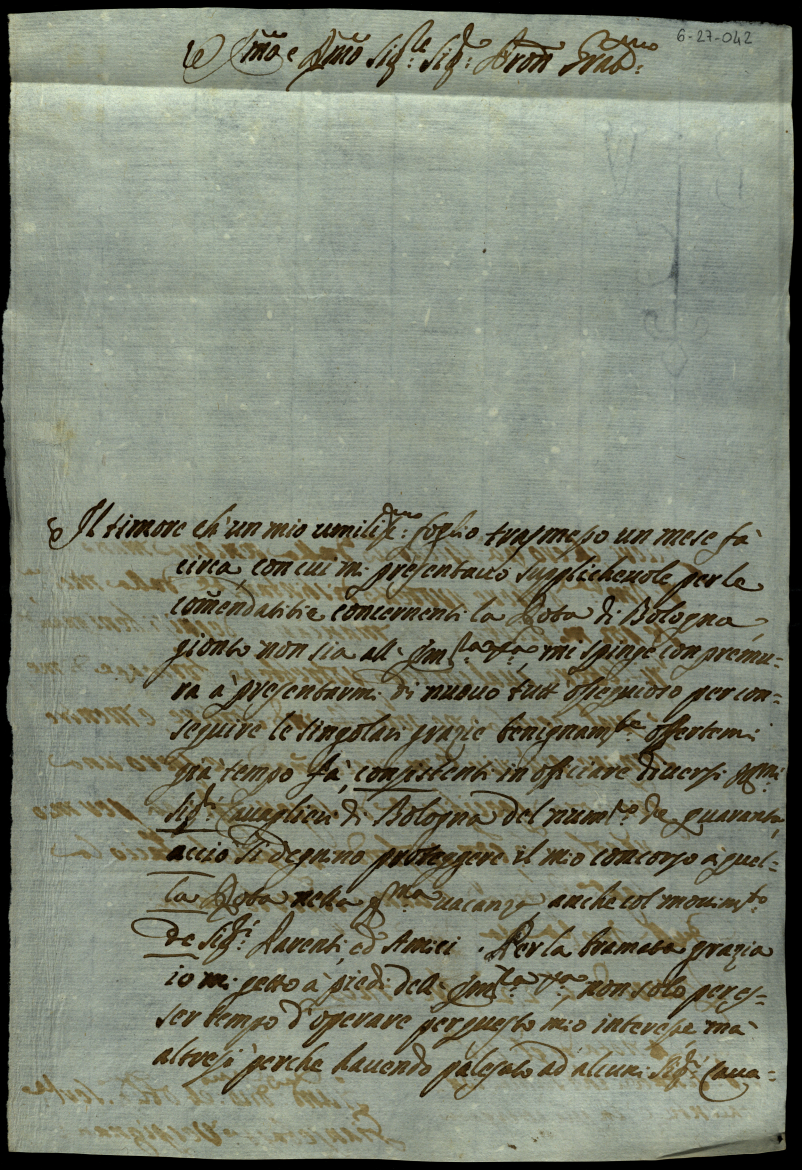 6-27-042
Ill.mo e R.mo Sig.re Sig.r Pron
Il timore ch'un mio umiliss.mo foglio trasmesso un mese fà
circa, con cui mi presentavo supplichevole per le
com̃endatitie concernenti la Rota di Bologna
gionto non sia all' Ill.ma V.ra, mi spinge con premu=
ra à presentarmi di nuovo tutt'ossequioso per con=
seguire le singolari grazie benignam.te offertemi
già tempo fà, consistenti in officiare diversi
Sig.ri Cavaglieri di Bologna del num.ro de quaranta,
acciò si degnino proteggere il mio concorso a quel=
la Rota nella p.ma vacanza anche col
de Sig.ri Parenti, ed Amici. Per la bramata grazia
io mi getto à piedi dell' Ill.ma V.ra non solo per es=
ser tempo d'operare per questo mio interesse mà
altresì perche havendo palesato ad alcuni Sig.ri Cava=